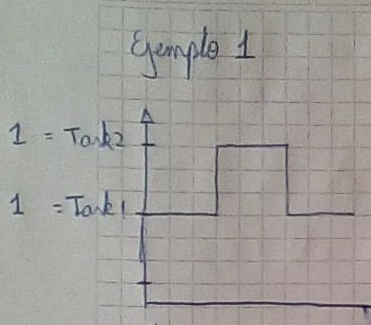 Ejemplo 1
1 = Task2
1 = Task1